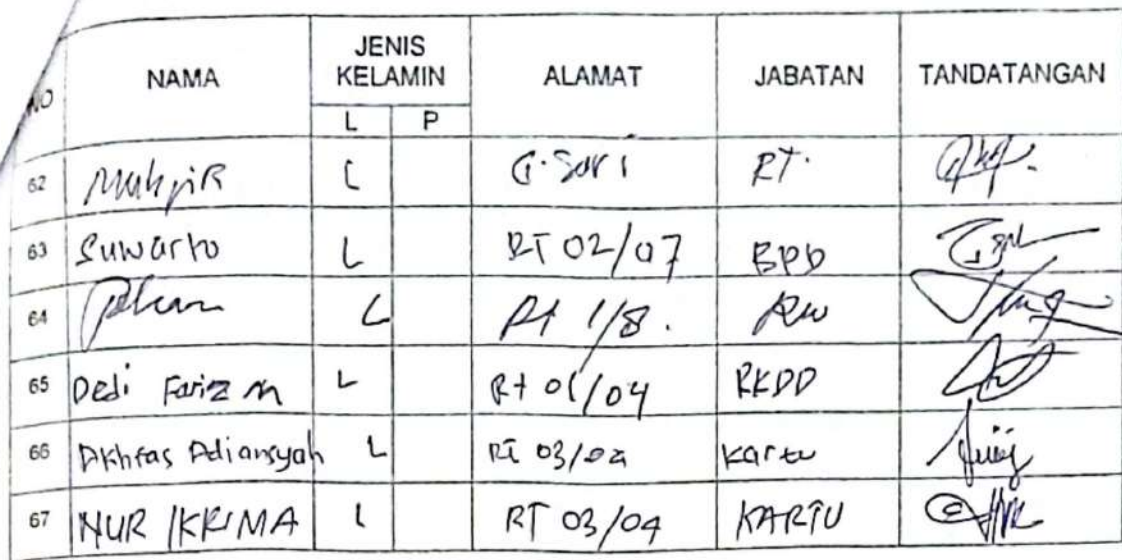 NO NAMA JENIS KELAMIN ALAMAT JABATAN TANDATANGAN
L P
62 Mukjir L G. Sari RT.
63 Suwarto L RT 02/07 BPD
64 L Rt 1/8. RW
65 Dedi Fariz M L Rt 01/04 RKDD
66 Akhfas Adiansyah L RT 03/02 Kartu
67 NUR IKRIMA L RT 03/04 KARTU